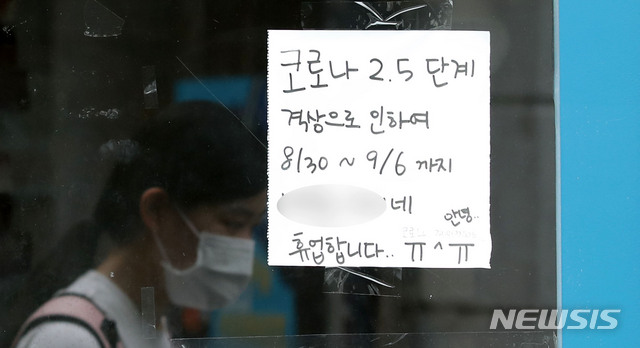 코로나 2.5 단계
격상으로 인하여
8/30 ~ 9/6 까지
네 안녕..
휴업합니다.. ㅠ^ㅠ
NEWSIS